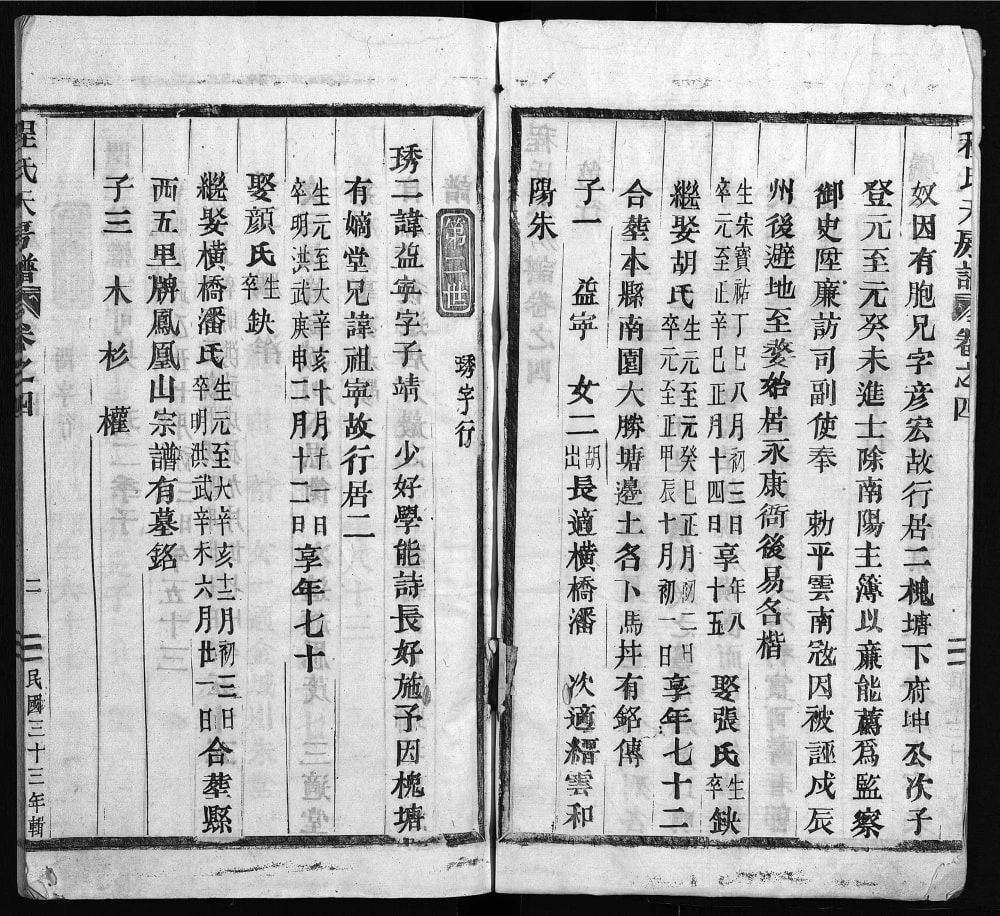 程氏大房譜 卷之四
奴因有胞兄字彥宏故行居二槐塘下府坤公次子
登元至元癸未進士除南陽主簿以亷能薦爲監察
御史陞廉訪司副使奉 勅平雲南宼因被誣戍辰
州後避地至婺始居永康衙後易名楷
生宋寶祐丁巳八月初三日年八
卒元至正辛巳正月十四日享十五 娶張氏生卒缺
繼娶胡氏生元至元癸巳正月初二日
卒元至正甲辰十月初一日享年七十二
合塟本縣南園大勝塘邊土名卜馬丼有銘傳
子一 益寧 女二胡出長適橫橋潘 次適縉雲和
陽朱
第二世
琇字行
琇二諱益寧字子靖少好學能詩長好施子因槐塘
有嫡堂兄諱祖寧故行居二
生元至大辛亥十月十一日
卒明洪武庚申二月十二日享年七十
娶顔氏生卒缺
繼娶橫橋潘氏生元至大辛亥十二月初三日
卒明洪武辛未六月廿一日合塟縣
西五里牌鳳凰山宗譜有墓銘
子三 木 杉 權
程氏大房譜 卷之四 二 民國三十三年輯